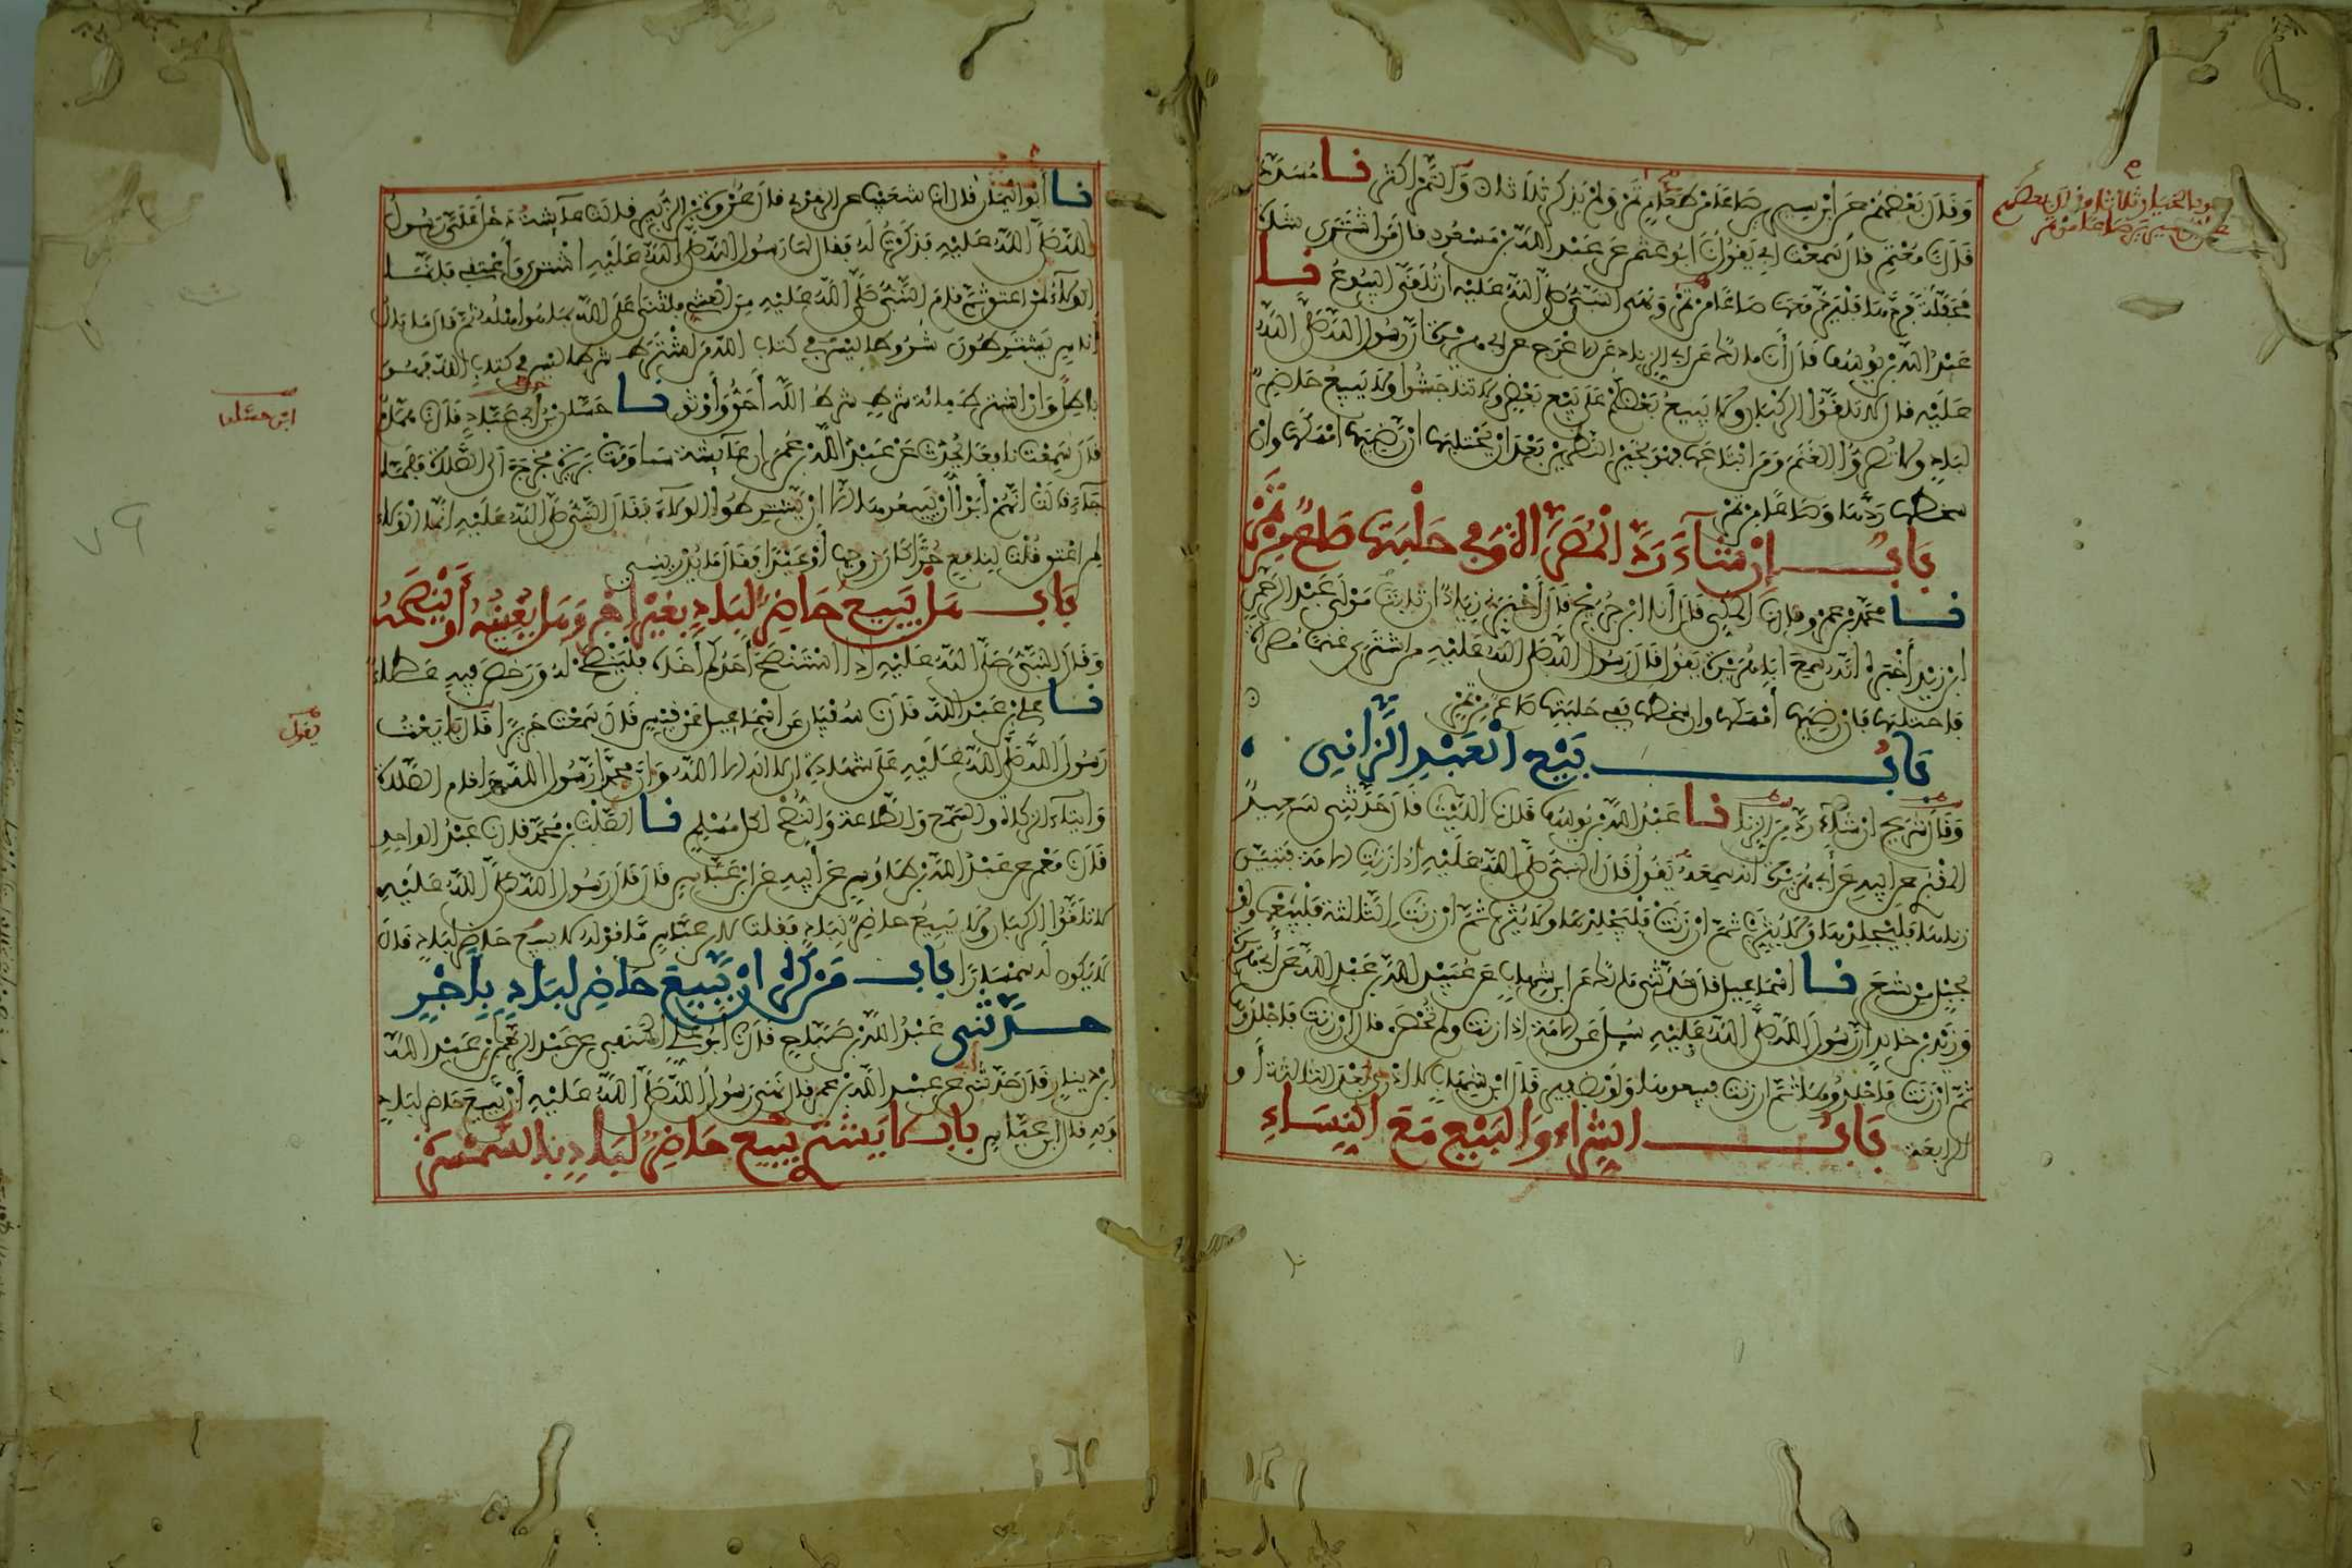 وَقَالَ بَعْضُهُمْ عَنِ ابْنِ سِيرِينَ صَاعًا مِنْ طَعَامٍ ثَمَرٍ وَلَمْ يَذْكُرْ ثَلَاثًا وَالتَّمْرُ أَكْثَرُ نا مُسَدَّدٌ
قَالَ نا مُعْتَمِرٌ قَالَ سَمِعْتُ أَبِي يَقُولُ نا أَبُو عُثْمَن عَنْ عَبْدِ اللَّهِ بْنِ مَسْعُودٍ قَالَ مَنِ اشْتَرَى شَاةً
مُحَفَّلَةً فَرَدَّهَا فَلْيَرُدَّ مَعَهَا صَاعًا مِنْ تَمْرٍ وَنَهَى النَّبِيُّ صَلَّى اللَّهُ عَلَيْهِ أَنْ تُلَقَّى الْبُيُوعُ نا
عَبْدُ اللَّهِ بْنُ يُوسُفَ قَالَ أَنا مالك عَنْ أَبِي الزِّنَادِ عَنِ الأَعْرَجِ عَنْ أَبِي هُرَيْرَةَ أَنَّ رَسُولَ اللَّهِ صَلَّى اللَّهُ
عَلَيْهِ قَالَ لا تَلَقَّوُا الرُّكْبَانَ وَلا يَبِيعُ بَعْضُكُمْ عَلَى بَيْعِ بَعْضٍ وَلا تَنَاجَشُوا وَلا يَبِيعُ حَاضِرٌ
لِبَادٍ وَلا تُصَرُّوا الْغَنَمَ وَمَنِ ابْتَاعَهَا فَهُوَ بِخَيْرِ النَّظَرَيْنِ بَعْدَ أَنْ يَحْتَلِبَهَا إِنْ رَضِيَهَا أَمْسَكَهَا وَإِنْ
سَخِطَهَا رَدَّهَا وَصَاعًا مِنْ تَمْرٍ
بَابٌ إِنْ شَاءَ رَدَّ الْمُصَرَّاةَ وَفِي حَلْبَتِهَا صَاعٌ مِنْ تَمْرٍ
نا مُحَمَّدُ بْنُ عَمْرٍو قال نا الْمَكِّي قَالَ أَنا ابْنُ جُرَيْجٍ قَالَ أَخْبَرَنِي زِيَادٌ أَنَّ ثَابِتًا مَوْلَى عَبْدِ الرَّحْمَنِ
ابْنِ زَيْدٍ أَخْبَرَهُ أَنَّهُ سَمِعَ أَبَا هُرَيْرَةَ يَقُولُ قَالَ رَسُولُ اللَّهِ صَلَّى اللَّهُ عَلَيْهِ مَنِ اشْتَرَى غَنَمًا مُصَرَّاةً
فَاحْتَلَبَهَا فَإِنْ رَضِيَهَا أَمْسَكَهَا وَإِنْ سَخِطَهَا فَفِي حَلْبَتِهَا صَاعٌ مِنْ تَمْرٍ
بَابُ بَيْعِ الْعَبْدِ الزَّانِي
وَقَالَ شُرَيْحٌ إِنْ شَاءَ رَدَّ مِنَ الزِّنَا نا عَبْدُ اللَّهِ بْنُ يُوسُفَ قَالَ نا اللَّيْثُ قَالَ حَدَّثَنِي سَعِيدٌ
الْمَقْبُرِي عَنْ أَبِيهِ عَنْ أَبِي هُرَيْرَةَ أَنَّهُ سَمِعَهُ يَقُولُ قَالَ النَّبِيُّ صَلَّى اللَّهُ عَلَيْهِ إِذَا زَنَتِ الأَمَةُ فَتَبَيَّنَ
زِنَاهَا فَلْيَجْلِدْهَا وَلا يُثَرِّبْ ثُمَّ إِنْ زَنَتْ فَلْيَجْلِدْهَا وَلا يُثَرِّبْ ثُمَّ إِنْ زَنَتِ الثَّالِثَةَ فَلْيَبِعْهَا وَلَوْ
بِحَبْلٍ مِنْ شَعَرٍ نا إِسْمَاعِيلُ قَالَ حَدَّثَنِي مَالِكٌ عَنِ ابْنِ شِهَابٍ عَنْ عُبَيْدِ اللَّهِ بْنِ عَبْدِ اللَّهِ عَنْ أَبِي هُرَيْرَةَ
وَزَيْدِ بْنِ خَالِدٍ أَنَّ رَسُولَ اللَّهِ صَلَّى اللَّهُ عَلَيْهِ سُئِلَ عَنِ الأَمَةِ إِذَا زَنَتْ وَلَمْ تُحْصَنْ قَالَ إِنْ زَنَتْ فَاجْلِدُوهَا
ثُمَّ إِنْ زَنَتْ فَاجْلِدُوهَا ثُمَّ إِنْ زَنَتْ فَبِيعُوهَا وَلَوْ بِضَفِيرٍ قَالَ ابْنُ شِهَابٍ لا أَدْرِي بَعْدَ الثَّالِثَةِ أَوِ
الرَّابِعَةِ بَابُ الشِّرَاءِ وَالْبَيْعِ مَعَ النِّسَاءِ
نا أَبُو الْيَمَانِ قَالَ أنا شُعَيْبٌ عَنِ الزُّهْرِيِّ قَالَ عُرْوَةُ بْنُ الزُّبَيْرِ قَالَتْ عَائِشَةُ دَخَلَ عَلَيَّ رَسُولُ
اللَّهِ صَلَّى اللَّهُ عَلَيْهِ فَذَكَرْتُ لَهُ فَقَالَ لَهَا رَسُولُ اللَّهِ صَلَّى اللَّهُ عَلَيْهِ اشْتَرِي وَأَعْتِقِي فَإِنَّمَا
الْوَلاءُ لِمَنْ أَعْتَقَ ثُمَّ قَامَ النَّبِيُّ صَلَّى اللَّهُ عَلَيْهِ مِنَ الْعَشِيِّ فَأَثْنَى عَلَى اللَّهِ بِمَا هُوَ أَهْلُهُ ثُمَّ قَالَ مَا بَالُ
أُنَاسٍ يَشْتَرِطُونَ شُرُوطًا لَيْسَ فِي كِتَابِ اللَّهِ مَنِ اشْتَرَطَ شَرْطًا لَيْسَ فِي كِتَابِ اللَّهِ فَهُوَ
بَاطِلٌ وَإِنِ اشْتَرَطَ مِائَةَ شَرْطٍ شَرْطُ اللَّهِ أَحَقُّ وَأَوْثَقُ نا حَسَّانُ بْنُ أَبِي عَبَّادٍ قَالَ نا هَمَّامٌ
قَالَ سَمِعْتُ نَافِعًا يُحَدِّثُ عَنْ عَبْدِ اللَّهِ بْنِ عُمَرَ أَنَّ عَائِشَةَ سَاوَمَتْ بَرِيرَةَ فَخَرَجَ إِلَى الصَّلاةِ فَلَمَّا
جَاءَ قَالَتْ إِنَّهُمْ أَبَوْا أَنْ يَبِيعُوهَا إِلا أَنْ يَشْتَرِطُوا الْوَلاءَ فَقَالَ النَّبِيُّ صَلَّى اللَّهُ عَلَيْهِ إِنَّمَا الْوَلاءُ
لِمَنْ أَعْتَقَ قُلْتُ لِنَافِعٍ حُرًّا كَانَ زَوْجُهَا أَوْ عَبْدًا فَقَالَ مَا يُدْرِينِي
بَابٌ هَلْ يَبِيعُ حَاضِرٌ لِبَادٍ بِغَيْرِ أَجْرٍ وَهَلْ يُعِينُهُ أَوْ يَنْصَحُهُ
وَقَالَ النَّبِيُّ صَلَّى اللَّهُ عَلَيْهِ إِذَا اسْتَنْصَحَ أَحَدُكُمْ أَخَاهُ فَلْيَنْصَحْ لَهُ وَرَخَّصَ فِيهِ عَطَاءٌ
نا عَلِيُّ بْنُ عَبْدِ اللَّهِ قَالَ نا سُفْيَانُ عَنْ إِسْمَاعِيلَ عَنْ قَيْسٍ قَالَ سَمِعْتُ جَرِيرًا قَالَ بَايَعْتُ
رَسُولَ اللَّهِ صَلَّى اللَّهُ عَلَيْهِ عَلَى شَهَادَةِ أَنْ لا إِلَهَ إِلا اللَّهُ وَأَنَّ مُحَمَّدًا رَسُولُ اللَّهِ وَإِقَامِ الصَّلاةِ
وَإِيتَاءِ الزَّكَاةِ وَالسَّمْعِ وَالطَّاعَةِ وَالنُّصْحِ لِكُلِّ مُسْلِمٍ نا الصَّلْتُ بْنُ مُحَمَّدٍ قَالَ نا عَبْدُ الْوَاحِدِ
قَالَ نا مَعْمَرٌ عَنْ عَبْدِ اللَّهِ بْنِ طَاوُسٍ عَنْ أَبِيهِ عَنِ ابْنِ عَبَّاسٍ قَالَ قَالَ رَسُولُ اللَّهِ صَلَّى اللَّهُ عَلَيْهِ
لا تَلَقَّوُا الرُّكْبَانَ وَلا يَبِيعُ حَاضِرٌ لِبَادٍ فَقُلْتُ لابْنِ عَبَّاسٍ مَا قَوْلُهُ لا يَبِيعُ حَاضِرٌ لِبَادٍ قَالَ
لا يَكُونُ لَهُ سِمْسَارًا بَابُ مَنْ كَرِهَ أَنْ يَبِيعَ حَاضِرٌ لِبَادٍ بِأَجْرٍ
حدَّثَنِي عَبْدُ اللَّهِ بْنُ صَبَّاحٍ قَالَ نا أَبُو عَلِيٍّ الْحَنَفِي عَنْ عَبْدِ الرَّحْمَنِ بْنِ عَبْدِ اللَّهِ
ابْنِ دِينَارٍ قَالَ حَدَّثَنِي أبي عَنْ عَبْدِ اللَّهِ بْنِ عُمَرَ قَالَ نَهَى رَسُولُ اللَّهِ صَلَّى اللَّهُ عَلَيْهِ أَنْ يَبِيعَ حَاضِرٌ لِبَادٍ
وَبِهِ قَالَ ابْنُ عَبَّاسٍ بَابٌ لا يَشْتَرِ يَبِيعُ حَاضِرٌ لِبَادٍ بِالسَّمْسَرَةِ
ابن حسان
يقول